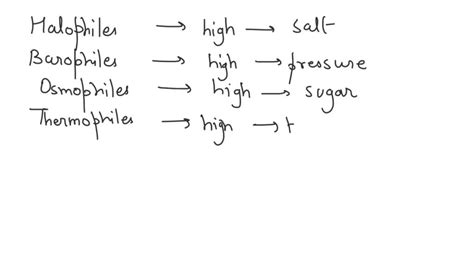 Halophiles → high → salt
Barophiles → high → pressure
Osmophiles → high → sugar
Thermophiles → high → t